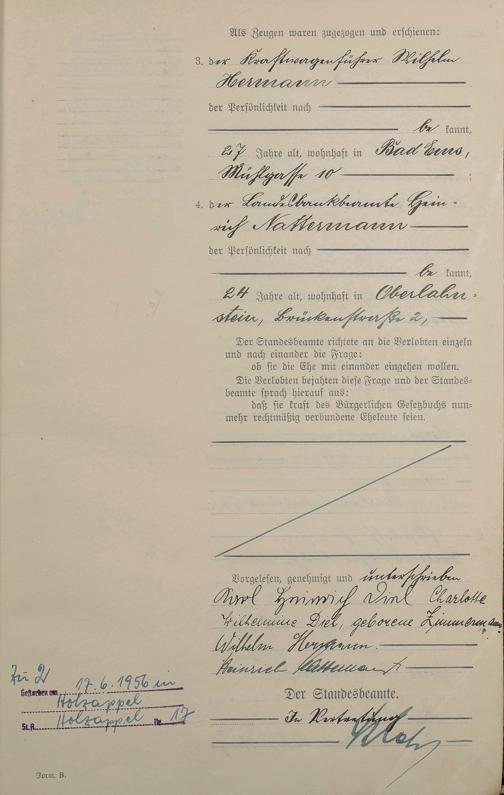 Als Zeugen waren zugezogen und erschienen:
3. der Kraftwagenführer Wilhelm
Hermann
der Persönlichkeit nach
be kannt,
27 Jahre alt, wohnhaft in Bad Ems,
Mühlgasse 10 ;
4. der Landesbankbeamte Hein-
rich Nattermann
der Persönlichkeit nach
be kannt,
24 Jahre alt, wohnhaft in Oberlahn-
stein, Brückenstraße 2,
Der Standesbeamte richtete an die Verlobten einzeln
und nach einander die Frage:
ob sie die Ehe mit einander eingehen wollen.
Die Verlobten bejahten diese Frage und der Standes-
beamte sprach hierauf aus:
daß sie kraft des Bürgerlichen Gesetzbuchs nun-
mehr rechtmäßig verbundene Eheleute seien.
Vorgelesen, genehmigt und unterschrieben
Karl Heinrich Diel Charlotte
Wilhelmine Diel, geborene Zimmermann
Wilhelm Hermann.
Heinrich Nattermann
Der Standesbeamte.
In Vertretung
Zu 2
Gestorben am 17.6.1956 in
Holzappel
St.A. Holzappel Nr. 17
Form. B.